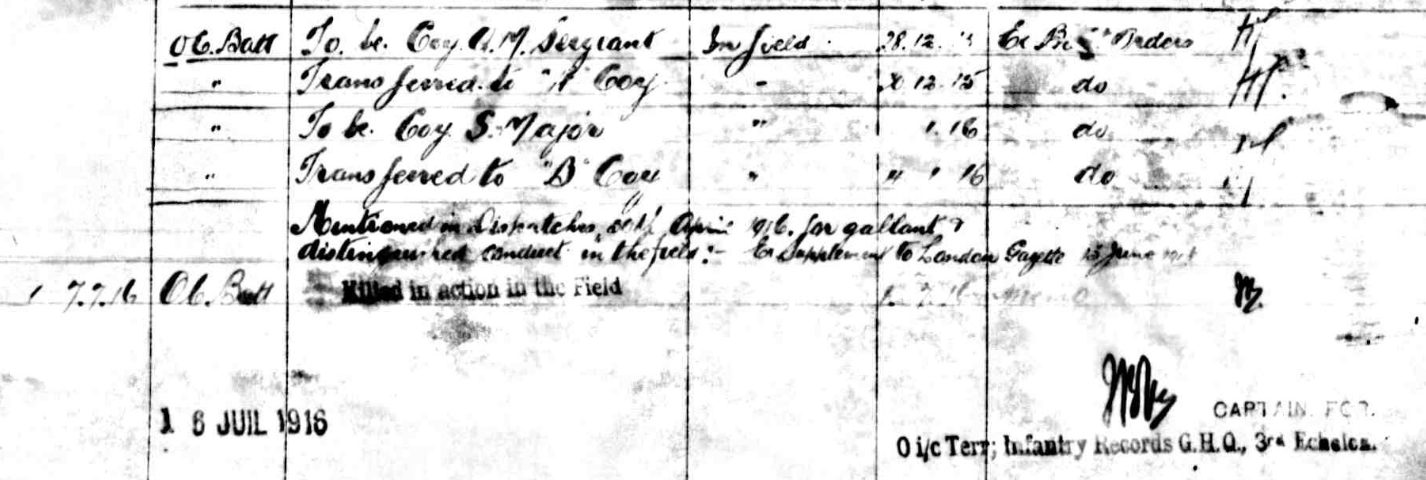 O.C. Batt To. be. Coy. Q. M. Sergeant In field 28.12. Orders
" Transferred to "A" Coy " 12.15 do
" To be. Coy S. Major " 1.16 do
" Transferred to "B" Coy " " 1 16 do
Mentioned in Dispatches April 1916. for gallant &
distinguished conduct in the field:- Ex Supplement to London Gazette 15 June
7.7.16 O.C. Batt Killed in action in the Field
16 JUIL 1916
CAPTAIN. FOR.
O i/c Terr; Infantry Records G.H.Q., 3rd Echelon.